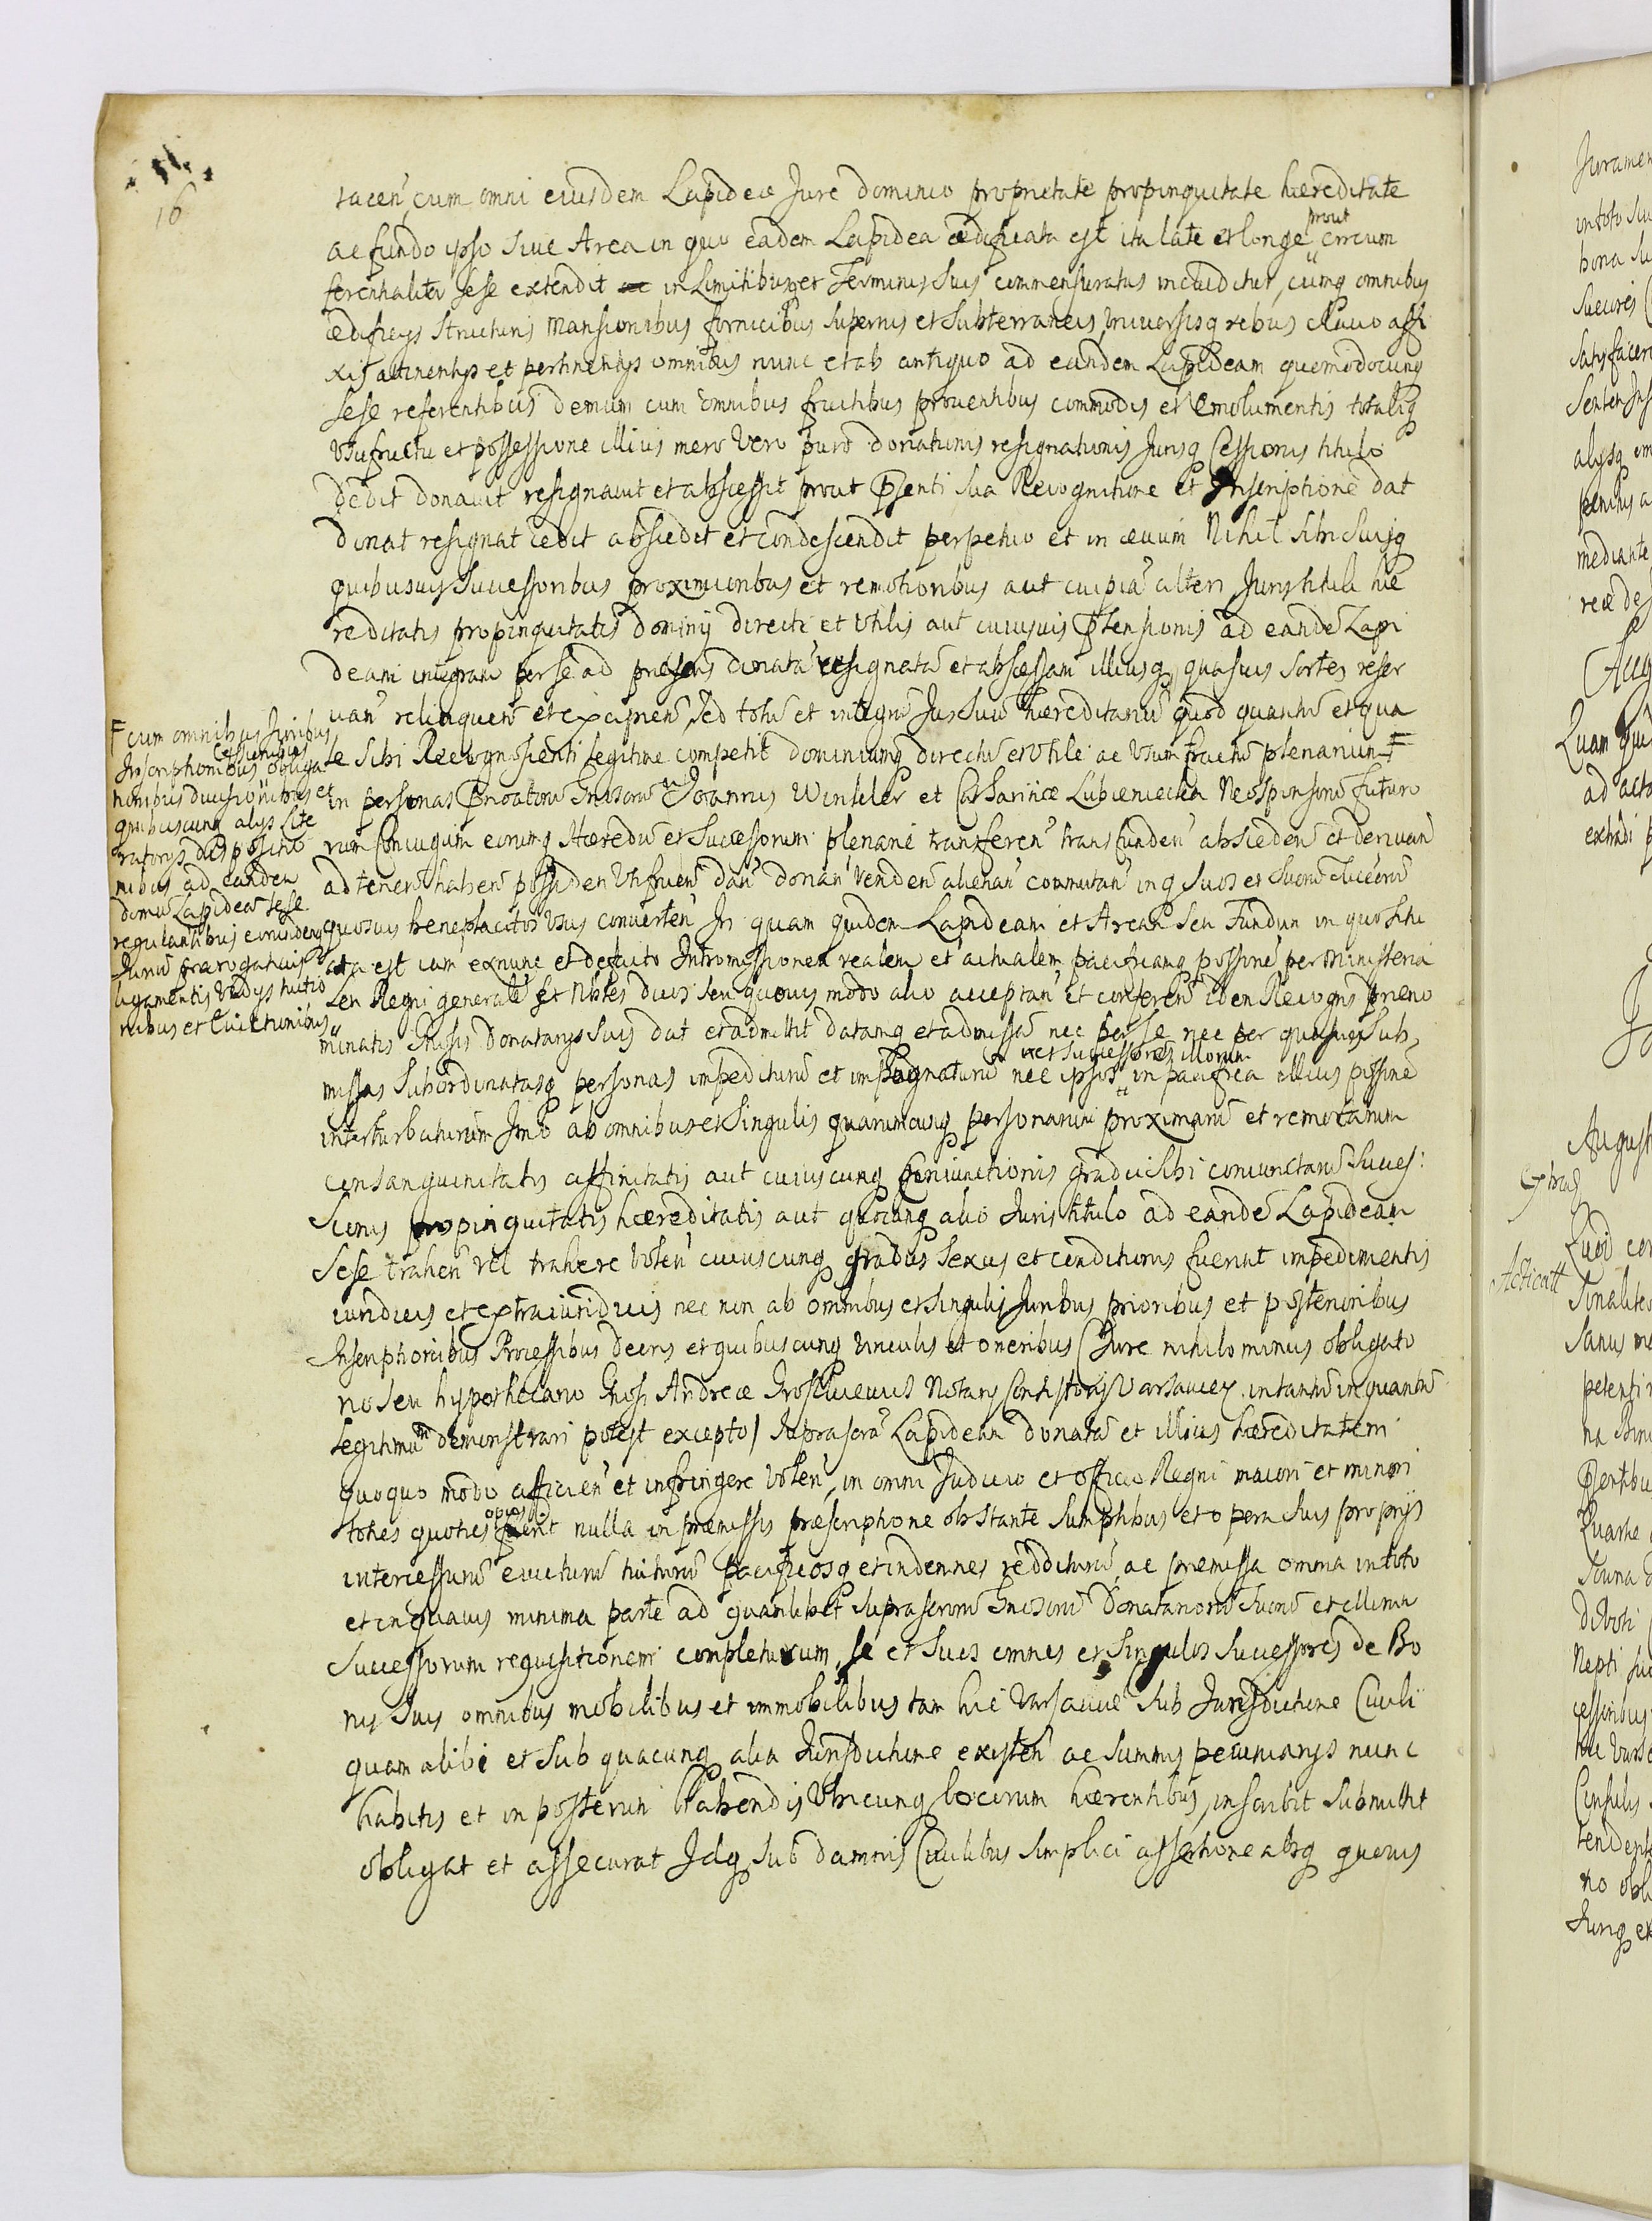 16
iacen̄ cum omni eiusdem Lapideæ Jure dominio proprietate propinquitate hæreditate
ac fundo ipso siue Area in quo eadem Lapidea ædificata est ita late et longe prout circum
ferentialiter sese extendit in Limitibusq̨ et Terminis suis commensuratus includitur, cumq̨ omnibus
ædificijs structuris mansionibus fornicibus supernis et subterraneis vniuersisq̨ rebus clauo affi
xis attinentijs et pertinentijs omnibus nunc et ab antiquo ad eandem Lapideam quomodocunq̨
sese referentibus demum cum omnibus fructibus prouentibus commodis et emolumentis totaliq̨
Vsufructu et possessione illius mero vero puro donationis resignationis Jurisq̨ Cessionis titulo
dedit donauit resignauit et abscessit prout P̄senti sua Recognitione et Inscriptione dat
donat resignat cedit abscedit et condescendit perpetuo et in æuum Nihil sibi suisq̨
quibusuis Successoribus proximioribus et remotioribus aut cuipiā alteri Juris tituli hæ
reditatis propinquitatis dominij directi et vtilis aut cuiusuis P̄tensionis ad eandē Lapi
deam integram per se ad præsens donatā resignatā et abscessam illiusq̨ quasuis sortes reser
uan̄ relinquen̄ et excipien̄, sed totū et integrū Jus suū hæreditariū quod quantū et qua
le sibi Recognoscenti legitime competit dominiumq̨ directū et vtile ac vsumfructū plenarium F
in personas P̄noatorū Gnosorū Joannis Winkler et Catharinæ Lubieniecka Neosponsorū futuro
rum Coniugum eorumq̨ Hæredū et Successorum plenarie transferen̄ transfunden̄ absceden̄ et deriuan̄
ad tenen̄ haben̄ possiden̄ vtifruen̄ dan̄ donan̄ venden̄ alienan̄ commutan̄ inq̨ suos et suorū
quosuis beneplacitos vsus conuerten̄ In quam quidem Lapideam et Aream seu Fundum in quo situ
ata est iam exnunc et defacto Intromissionem realem et actualem pacificamq̨ possnē per Ministeria
len Regni generalē et Nbiles duos seu quouis modo alio acceptan̄ et conferen̄ idem Recogns præno
minatis Gnosis Donatarijs suis dat et admittit datamq̨ et admissā nec per se nec per quasuis sub
missas subordinatasq̨ personas impediturū et impugnaturū nec ipsos et successores illorum in pacifica illius possnē
interturbaturum Imo ab omnibus et singulis quarumcunq̨ personarum proximarū et remotarum
consanguinitatis affinitatis aut cuiuscunq̨ Coniunctionis gradu sibi coniunctarū Succes:
sionis propinquitatis hæreditatis aut quocunq̨ alio Juris titulo ad eandē Lapideam
sese trahen̄ vel trahere volen̄ cuiuscunq̨ gradus sexus et conditionis fuerint impedimentis
iuridicis et extraiuridicis nec non ab omnibus et singulis Juribus prioribus et posterioribus
Inscriptionibus Processibus decretis et quibuscunq̨ vinculis et oneribus (Jure nihilominus obligato
rio seu hypothecario Gnosi Andreæ Notarij Consistorij Varsauien̄ in tantū in quantū
legitimum demonstrari potest excepto) suprascrā Lapideam donatā et illius hæreditatem
quoquo modo afficien̄ et infringere volen̄, in omni Judicio et officio Regni maiori et minori
toties quoties opus fuerit nulla in præmissis præscriptione obstante sumptibus et opera suis proprijs
intercessurū euicturū tuiturū pacificosq̨ et indemnes redditurū, ac præmissa omnia in toto
et in quauis minima parte ad quamlibet suprascrorū Gnosorū Donatariorū suorū et illorum
Successorum requisitionem completurum, se et suos omnes et singulos Successores de Bo
nis suis omnibus mobilibus et immobilibus tam hic Varsauiæ sub Jurisdictione Ciuili
quam alibi et sub quacunq̨ alia Jurisdictione existen̄ ac summis pecuniarijs nunc
habitis et in posterum habendis vbicunq̨ locorum hærentibus, inscribit submittit
obligat et assecurat Idq̨ sub damnis Ciuilibus simplici assertione absq̨ quouis
F cum omnibus Juribus
Inscriptionibus Cessionibus obliga
tionibus diuisionibus et
quibuscunq̨ alijs Lite
ratorijs dispositio
nibus ad eandem
domū Lapideā sese
regulantibus eorundemq̨
Juriū prærogatiuis
ligamentis Vadijs tuitio
nibus et Euictionibus